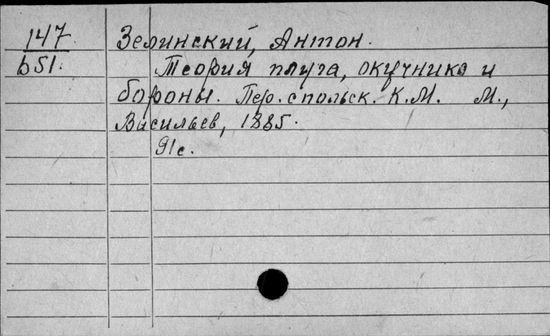 147 Зелинский, Антон.
b51. Теория плуга, окучника и
бороны. Пер. с польск. К.М. М.,
Васильев, 1885.
91с.